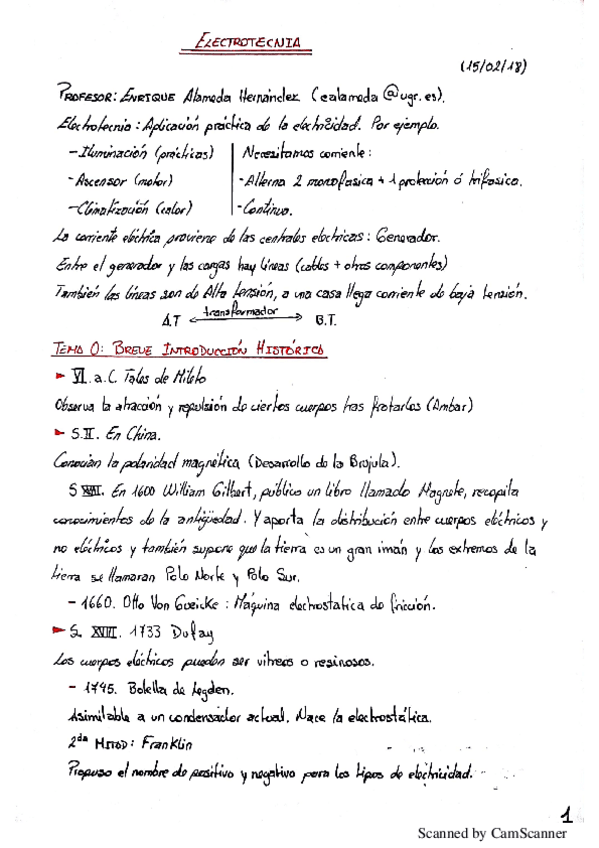 ELECTROTECNIA
(15/02/18)
PROFESOR: ENRIQUE Alameda Hernández (ealameda@ugr.es).
Electrotecnia: Aplicación práctica de la electricidad. Por ejemplo.
- Iluminación (prácticas) | Necesitamos corriente:
- Ascensor (motor) | - Alterna 2 monofasica + 1 protección ó trifasica.
- Climatización (calor) | - Continua.
La corriente eléctrica proviene de las centrales electricas: Generador.
Entre el generador y las cargas hay líneas (cables + otros componentes)
También las líneas son de Alta tensión, a una casa llega corriente de baja tensión.
A.T <—transformador—> B.T.
TEMA 0: BREVE INTRODUCCIÓN HISTÓRICA
► VI. a.C. Tales de Mileto
Observa la atracción y repulsión de ciertos cuerpos tras frotarlos (Ambar)
► S.II. En China.
Conocían la polaridad magnética (Desarrollo de la Brujula).
S XVII. En 1600 William Gilbert, público un libro llamado Magnete, recopila
conocimientos de la antigüedad. Y aporta la distribución entre cuerpos eléctricos y
no eléctricos y también supone que la tierra es un gran imán y los extremos de la
tierra se llamaran Polo Norte y Polo Sur.
- 1660. Otto Von Gueicke: Máquina electrostatica de fricción.
► S. XVIII. 1733 Dufay
Los cuerpos eléctricos pueden ser vitreos o resinosos.
- 1745. Botella de Leyden.
Asimilable a un condensador actual. Nace la electrostática.
2da MITAD: Franklin
Propuso el nombre de positivo y negativo para los tipos de electricidad.
1
Scanned by CamScanner